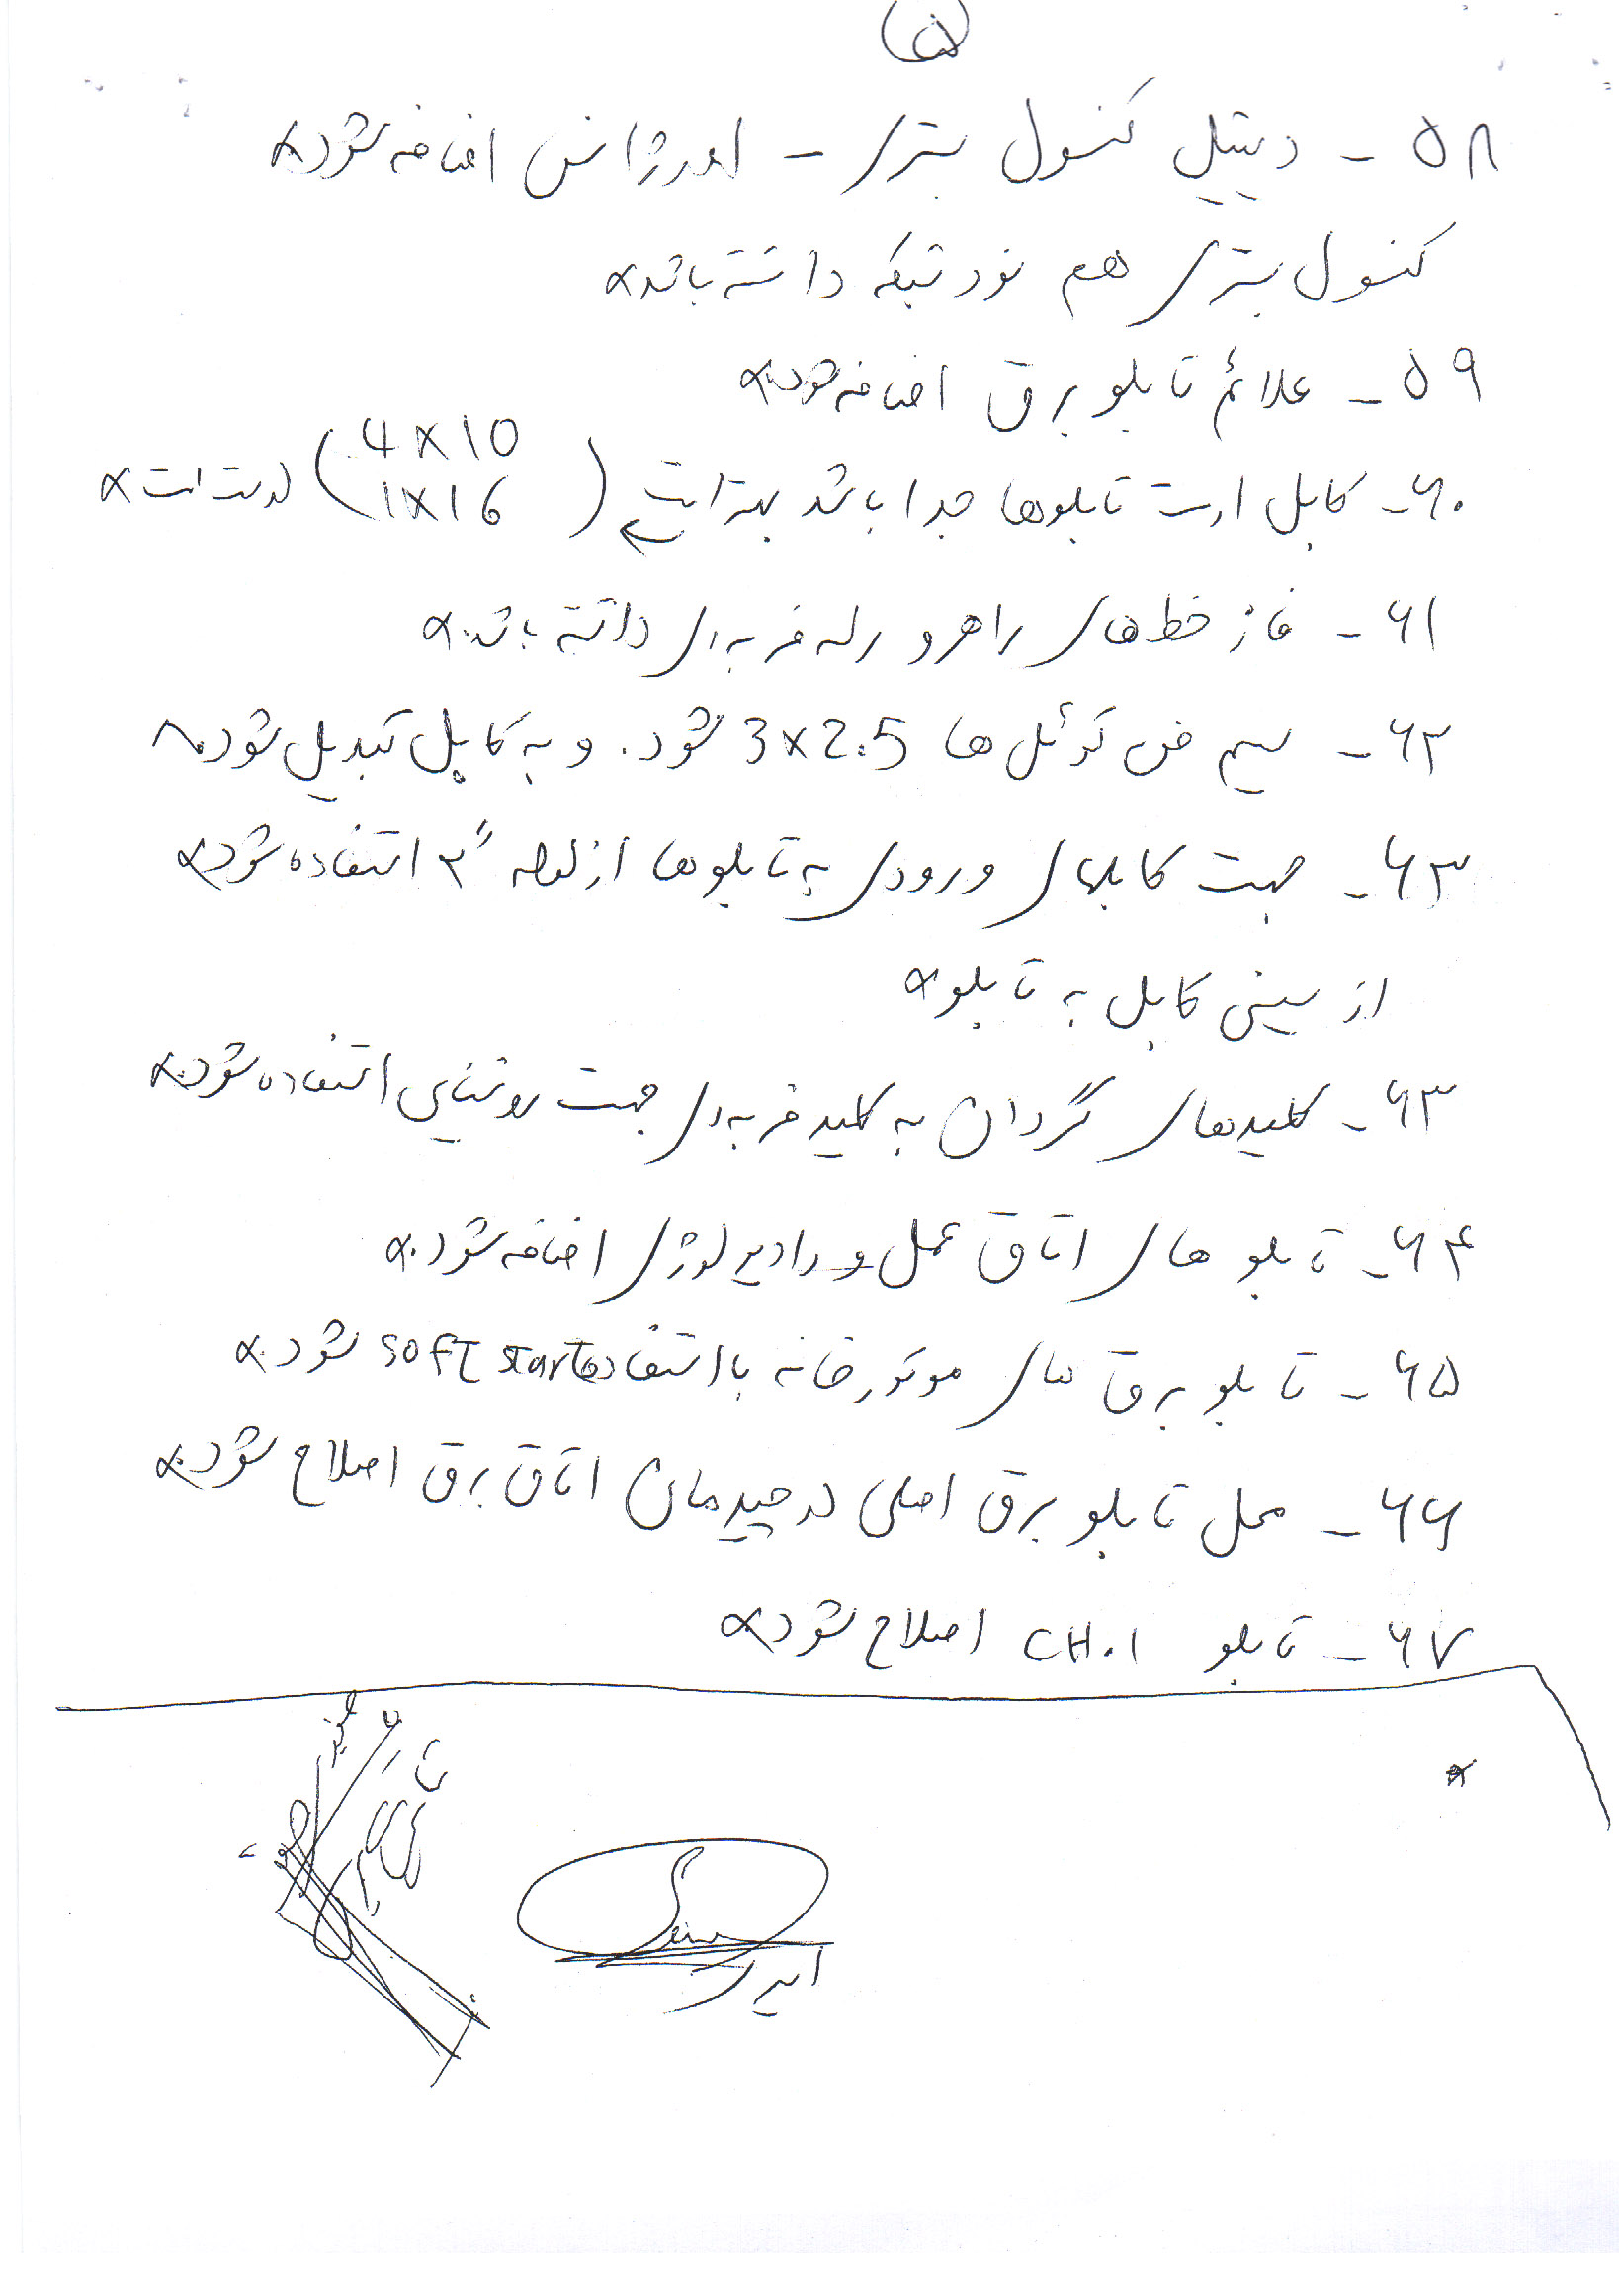 ۵
۵۸ - دیتیل کنسول بستری - اورژانس اضافه شود.
کنسول بستری هم نود شبکه داشته باشد.
۵۹ - علائم تابلو برق اضافه شود.
۶۰ - کابل ارت تابلوها جدا باشد بهتر است (4x10 1x16) درست است
۶۱ - فاز خط‌های راهرو رله ضربه‌ای داشته باشد.
۶۲ - سیم فن کوئل‌ها 3x2.5 شود. و به کابل تبدیل شود.
۶۳ - جهت کابلهای ورودی به تابلوها از لوله ۳" استفاده شود.
از سینی کابل به تابلو
۶۳ - کلیدهای گردان به کلید ضربه‌ای جهت روشنایی استفاده شود.
۶۴ - تابلوهای اتاق عمل و رادیولوژی اضافه شود.
۶۵ - تابلو برق های موتورخانه با استفاده soft starte شود.
۶۶ - محل تابلو برق اصلی در چیدمان اتاق برق اصلاح شود.
۶۷ - تابلو CH.1 اصلاح شود.